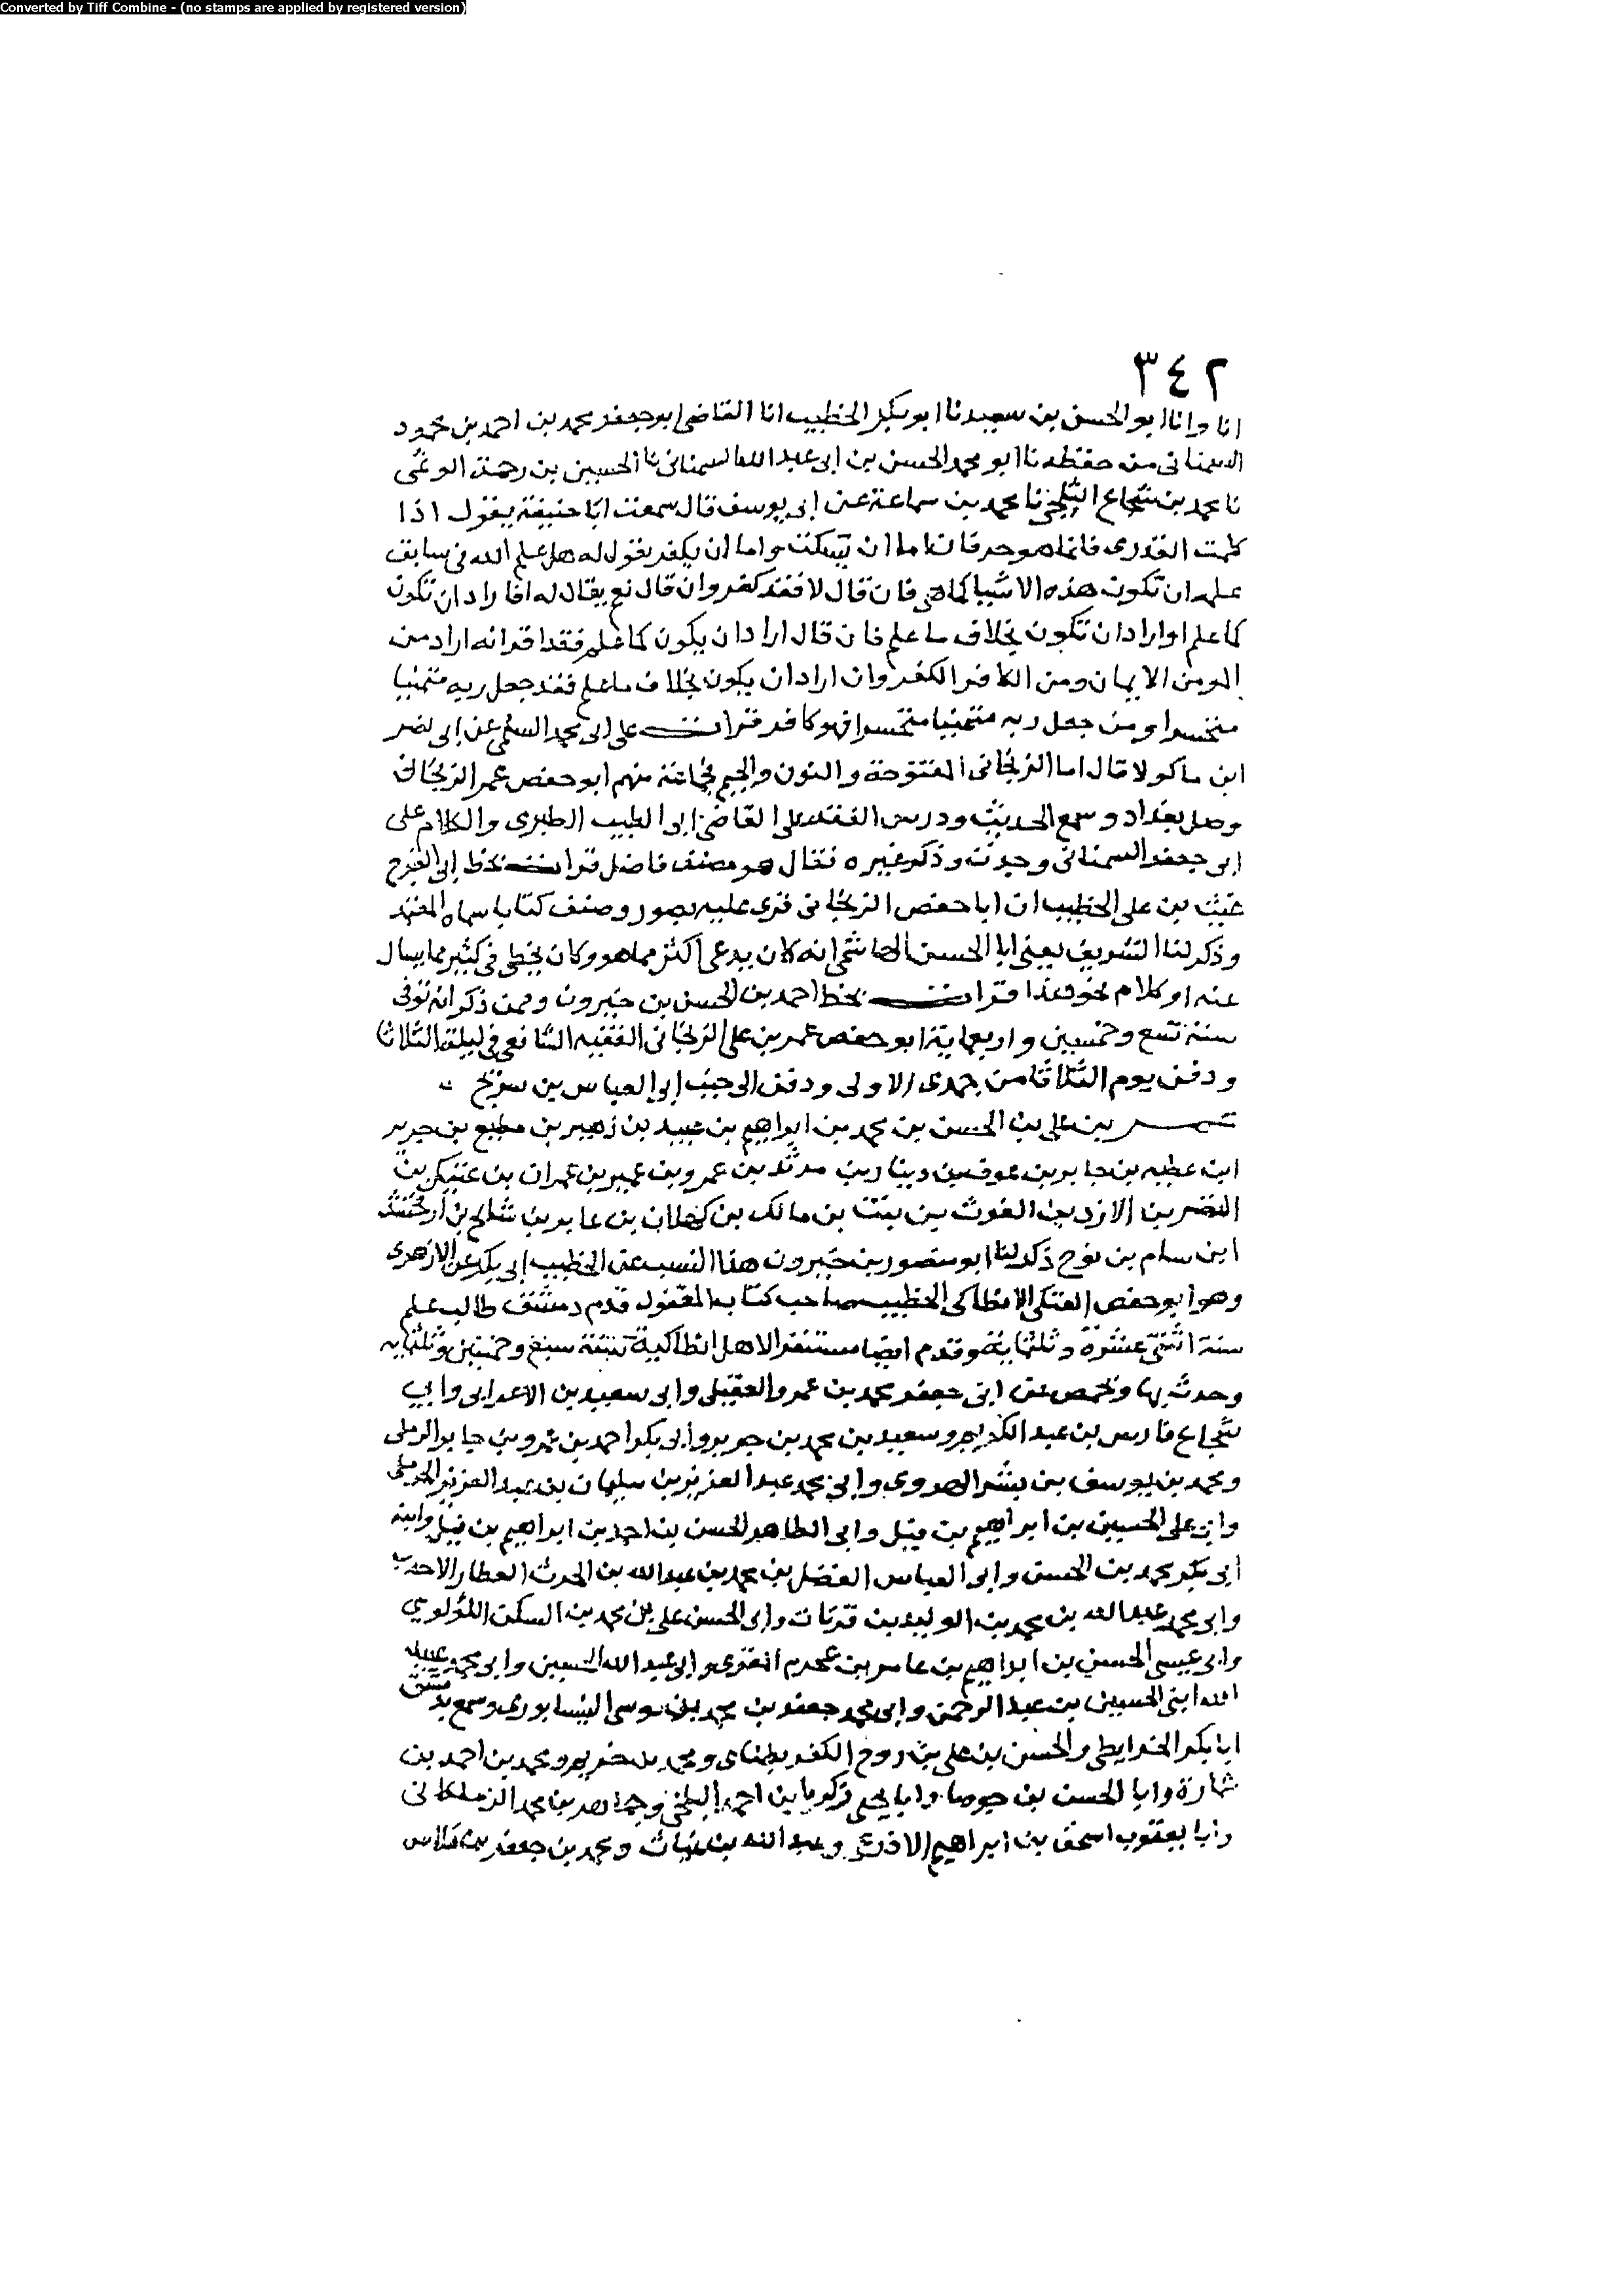 Converted by Tiff Combine - (no stamps are applied by registered version)
٣٤٢
انا وانا ابو الحسن بن سعيد نا ابو بكر الخطيب انا القاضي ابو جعفر محمد بن احمد بن محمود
السمناني من حفظه نا ابو محمد الحسن بن ابي عبد الله السمناني نا الحسين بن رحمة الوعمى
نا محمد بن شجاع الثلجي نا محمد بن سماعة عن ابي يوسف قال سمعت ابا حنيفة يقول اذا
كلمت القدري فانما هو حرفان اما ان يسكت واما ان يكفر يقول له هل علم الله في سابق
علمه ان تكون هذه الاشيا كما هي فان قال لا فقد كفر وان قال نعم يقال له افاراد ان تكون
كما علم او اراد ان تكون بخلاف ما علم فان قال اراد ان يكون كما علم فقد اقر انه اراد من
المومن الايمان ومن الكافر الكفر وان اراد ان يكون بخلاف ما علم فقد جعل ربه متمنيا
متحسرا ومن جعل ربه متمنيا متحسرا فهو كافر قرات على ابي محمد السلمي عن ابي نصر
ابن ماكولا قال اما الزنجاني المفتوحة والنون والجيم فجماعة منهم ابو حفص عمر الزنجاني
وصل بغداد وسمع الحديث ودرس الفقه على القاضي ابي الطيب الطبري والكلام على
ابي جعفر السمناني وحدث وذكر غيره فقال هو مصنف فاضل قرات بخط ابي الفرج
غيث بن علي الخطيب ان ابا حفص الزنجاني قرى عليه بصور وصنف كتابا سماه المعتمد
وذكر لنا الشريف يعني ابا الحسن الهاشمي انه كان يدعى اكثر مما هو وكان يخطى في كثير مما يسال
عنه او كلام نحو هذا قرات بخط احمد بن الحسن بن خيرون وممن ذكر انه توفي
سنة تسع وخمسين واربعماية ابو حفص عمر بن علي الزنجاني الفقيه الشافعي في ليلة الثلاثا
ودفن يوم الثلاثا من جمدى الاولى ودفن الى جنب ابي العباس بن سريج
عمر بن علي بن الحسن بن محمد بن ابراهيم بن عبيد بن زهير بن مطيع بن جرير
ابن عطيه بن جابر بن عوف بن دينار بن مرثد بن عمرو بن عمير بن عمران بن عتيك بن
النضر بن الازد بن الغوث بن نبت بن مالك بن كهلان بن عابر بن شالخ بن ارفخشذ
ابن سام بن نوح ذكر لنا ابو منصور بن خيرون هذا النسب عن الخطيب ابي بكر عن الازهري
وهو ابو حفص العتكي الانطاكي الخطيب صاحب كتاب المقبول قدم دمشق طالب علم
سنة اثنتي عشرة وثلثماية وقدم ايضا مستنفرا لاهل انطاكية سنة سبع وخمسين وثلثمايه
وحدث بها وبحمص عن ابي جعفر محمد بن عمرو العقيلي وابي سعيد بن الاعرابي وابي
شجاع فارس بن عبد الكريم وسعيد بن محمد بن جرير وابي بكر احمد بن عمرو بن جابر الرملي
ومحمد بن يوسف بن بشر الهروي وابي محمد عبد العزيز بن سليمان بن عبد العزيز الحرملي
وابي علي الحسين بن ابراهيم بن فيل وابي الطاهر الحسن بن احمد بن ابراهيم بن فيل وابنه
ابي بكر محمد بن الحسن وابي العباس الفضل بن محمد بن عبد الله بن الحرث العطار الاحدب
وابي محمد عبد الله بن محمد بن الوليد بن قربات وابي الحسن علي بن محمد بن السكن اللولوي
وابي عيسى الحسن بن ابراهيم بن عامر بن عجرم المقرى وابي عبد الله الحسين وابي محمد عبيد
الله ابني الحسين بن عبد الرحمن وابي محمد جعفر بن محمد بن موسى النيسابوري وسمع بدمشق
ابا بكر الخرايطي والحسن بن علي بن روح الكفربطناي ومحمد بن خريم ومحمد بن احمد بن
عمارة وابا الحسن بن جوصا وابا يحيى زكريا بن احمد البلخي وجماهر بن محمد الزملكاني
وابا يعقوب اسحق بن ابراهيم الاذرعي وعبد الله بن عتاب ومحمد بن جعفر بن ملاس